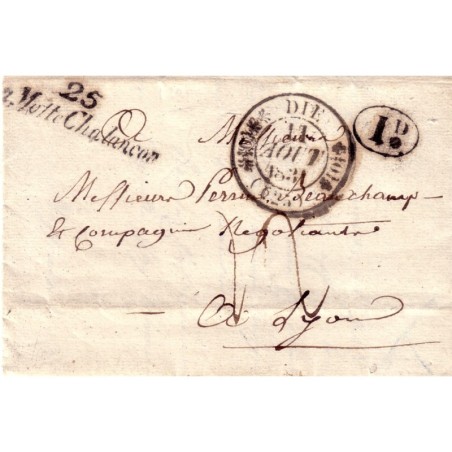 25
La Motte Chalançon
DIE
11
AOUT
1831
(25)
1D
A Messieurs
Messieurs Perrin, Beauchamp
& Compagnie Négotiants
A Lyon